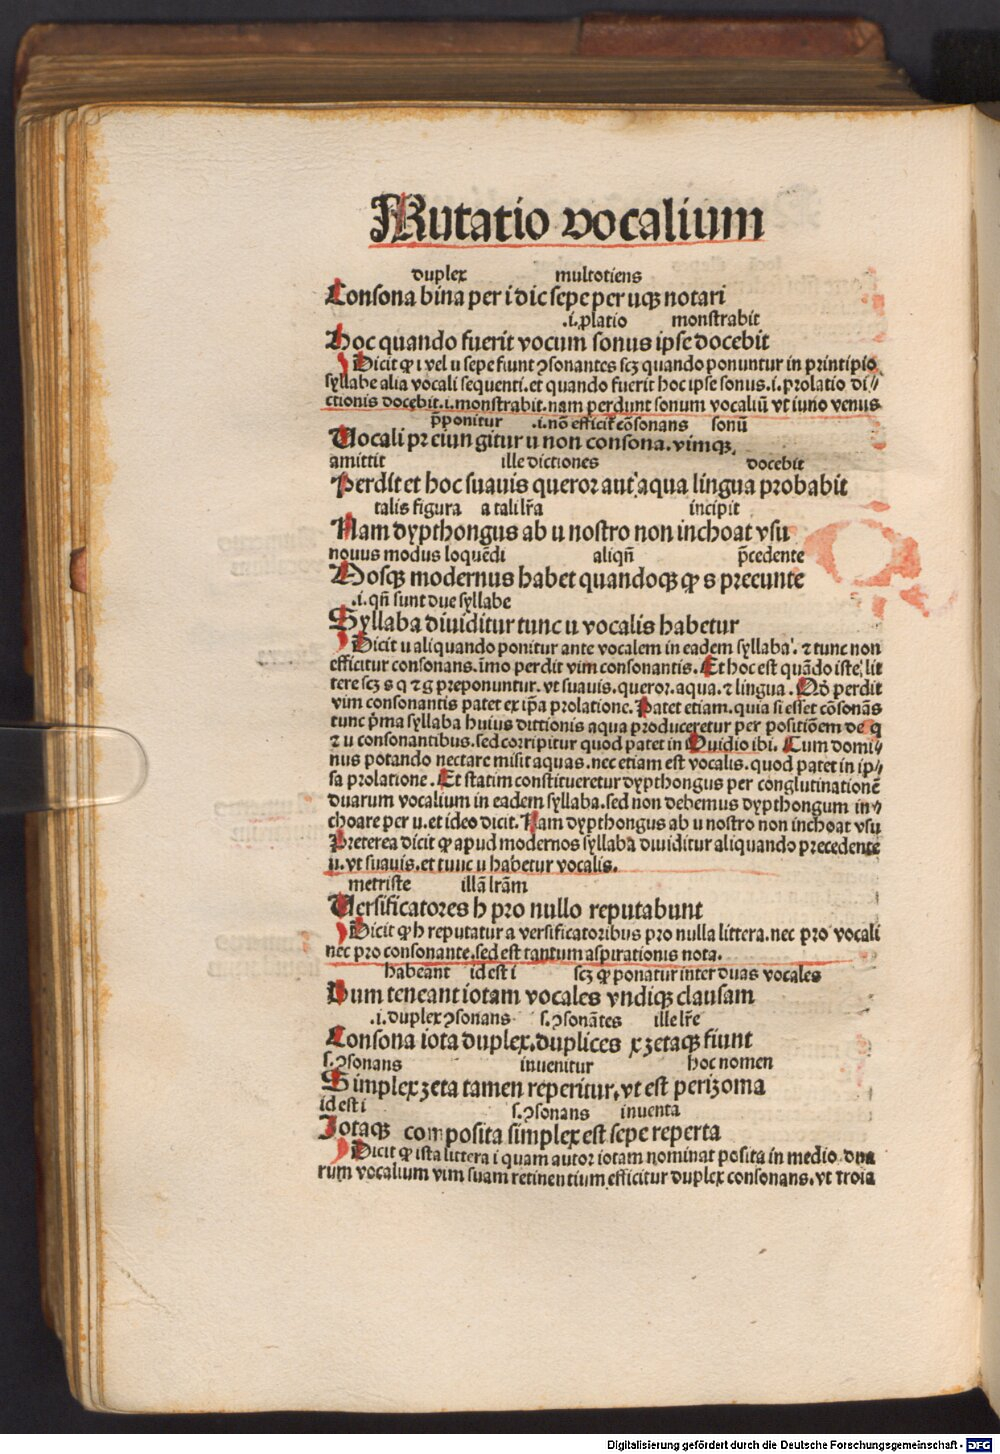 Mutatio vocalium
duplex multotiens
Consona bina per i dic sepe per uqꝫ notari
.i. ꝓlatio monstrabit
Hoc quando fuerit vocum sonus ipse docebit
Dicit ꝙ i vel u sepe fiunt ꝯsonantes scꝫ quando ponuntur in principio
syllabe alia vocali sequenti. et quando fuerit hoc ipse sonus .i. prolatio di⸗
ctionis docebit .i. monstrabit. nam perdunt sonum vocaliū vt iuno venus
p̄ponitur .i. nō efficit̃ cōsonans sonū
Vocali preiungitur u non consona. vimqꝫ
amittit ille dictiones docebit
Perdit et hoc suauis queror aut aqua lingua probabit
talis figura a tali lr̄a incipit
Nam dypthongus ab u nostro non inchoat vsu
nouus modus loquēdi aliqñ p̄cedente
Mosqꝫ modernus habet quandoqꝫ ꝙ s preeunte
.i. qñ sunt due syllabe
Syllaba diuiditur tunc u vocalis habetur
Dicit u aliquando ponitur ante vocalem in eadem syllaba. ⁊ tunc non
efficitur consonans. īmo perdit vim consonantis. Et hoc est quādo iste lit
tere scꝫ s q ⁊ g preponuntur. vt suauis. queror. aqua. ⁊ lingua. Qđ perdit
vim consonantis patet ex ip̄a prolatione. Patet etiam. quia si esset cōsonās
tunc p̄ma syllaba huius dittionis aqua produceretur per positiōem de q
⁊ u consonantibus. sed corripitur quod patet in Ouidio ibi. Cum domi⸗
nus potando nectare misit aquas. nec etiam est vocalis. quod patet in ip⸗
sa prolatione. Et statim constitueretur dypthongus per conglutinationē
duarum vocalium in eadem syllaba. sed non dehemus dypthongum in⸗
choare per u. et ideo dicit. Nam dypthongus ab u nostro non inchoat vsu
Preterea dicit ꝙ apud modernos syllaba diuiditur aliquando precedente
u. vt suauis. et tunc u habetur vocalis.
metriste illā lrām
Versificatores h pro nullo reputabunt
Dicit ꝙ h reputatur a versificatoribus pro nulla littera. nec pro vocali
nec pro consonante. sed est tantum aspirationis nota.
habeant id est i scꝫ ꝙ ponatur inter duas vocales
Dum teneant iotam vocales vndiqꝫ clausam
.i. duplex ꝯsonans s. ꝯsonātes ille lr̄e
Consona iota duplex. duplices x zetaqꝫ fiunt
s. ꝯsonans inuenitur hoc nomen
Simplex zeta tamen reperitur. vt est perizoma
id est i s. ꝯsonans inuenta
Iotaqꝫ composita simplex est sepe reperta
Dicit ꝙ ista littera i quam autor iotam nominat posita in medio dua
rum vocalium vim suam retinentium efficitur duplex consonans. vt troia
Digitalisierung gefördert durch die Deutsche Forschungsgemeinschaft - DFG